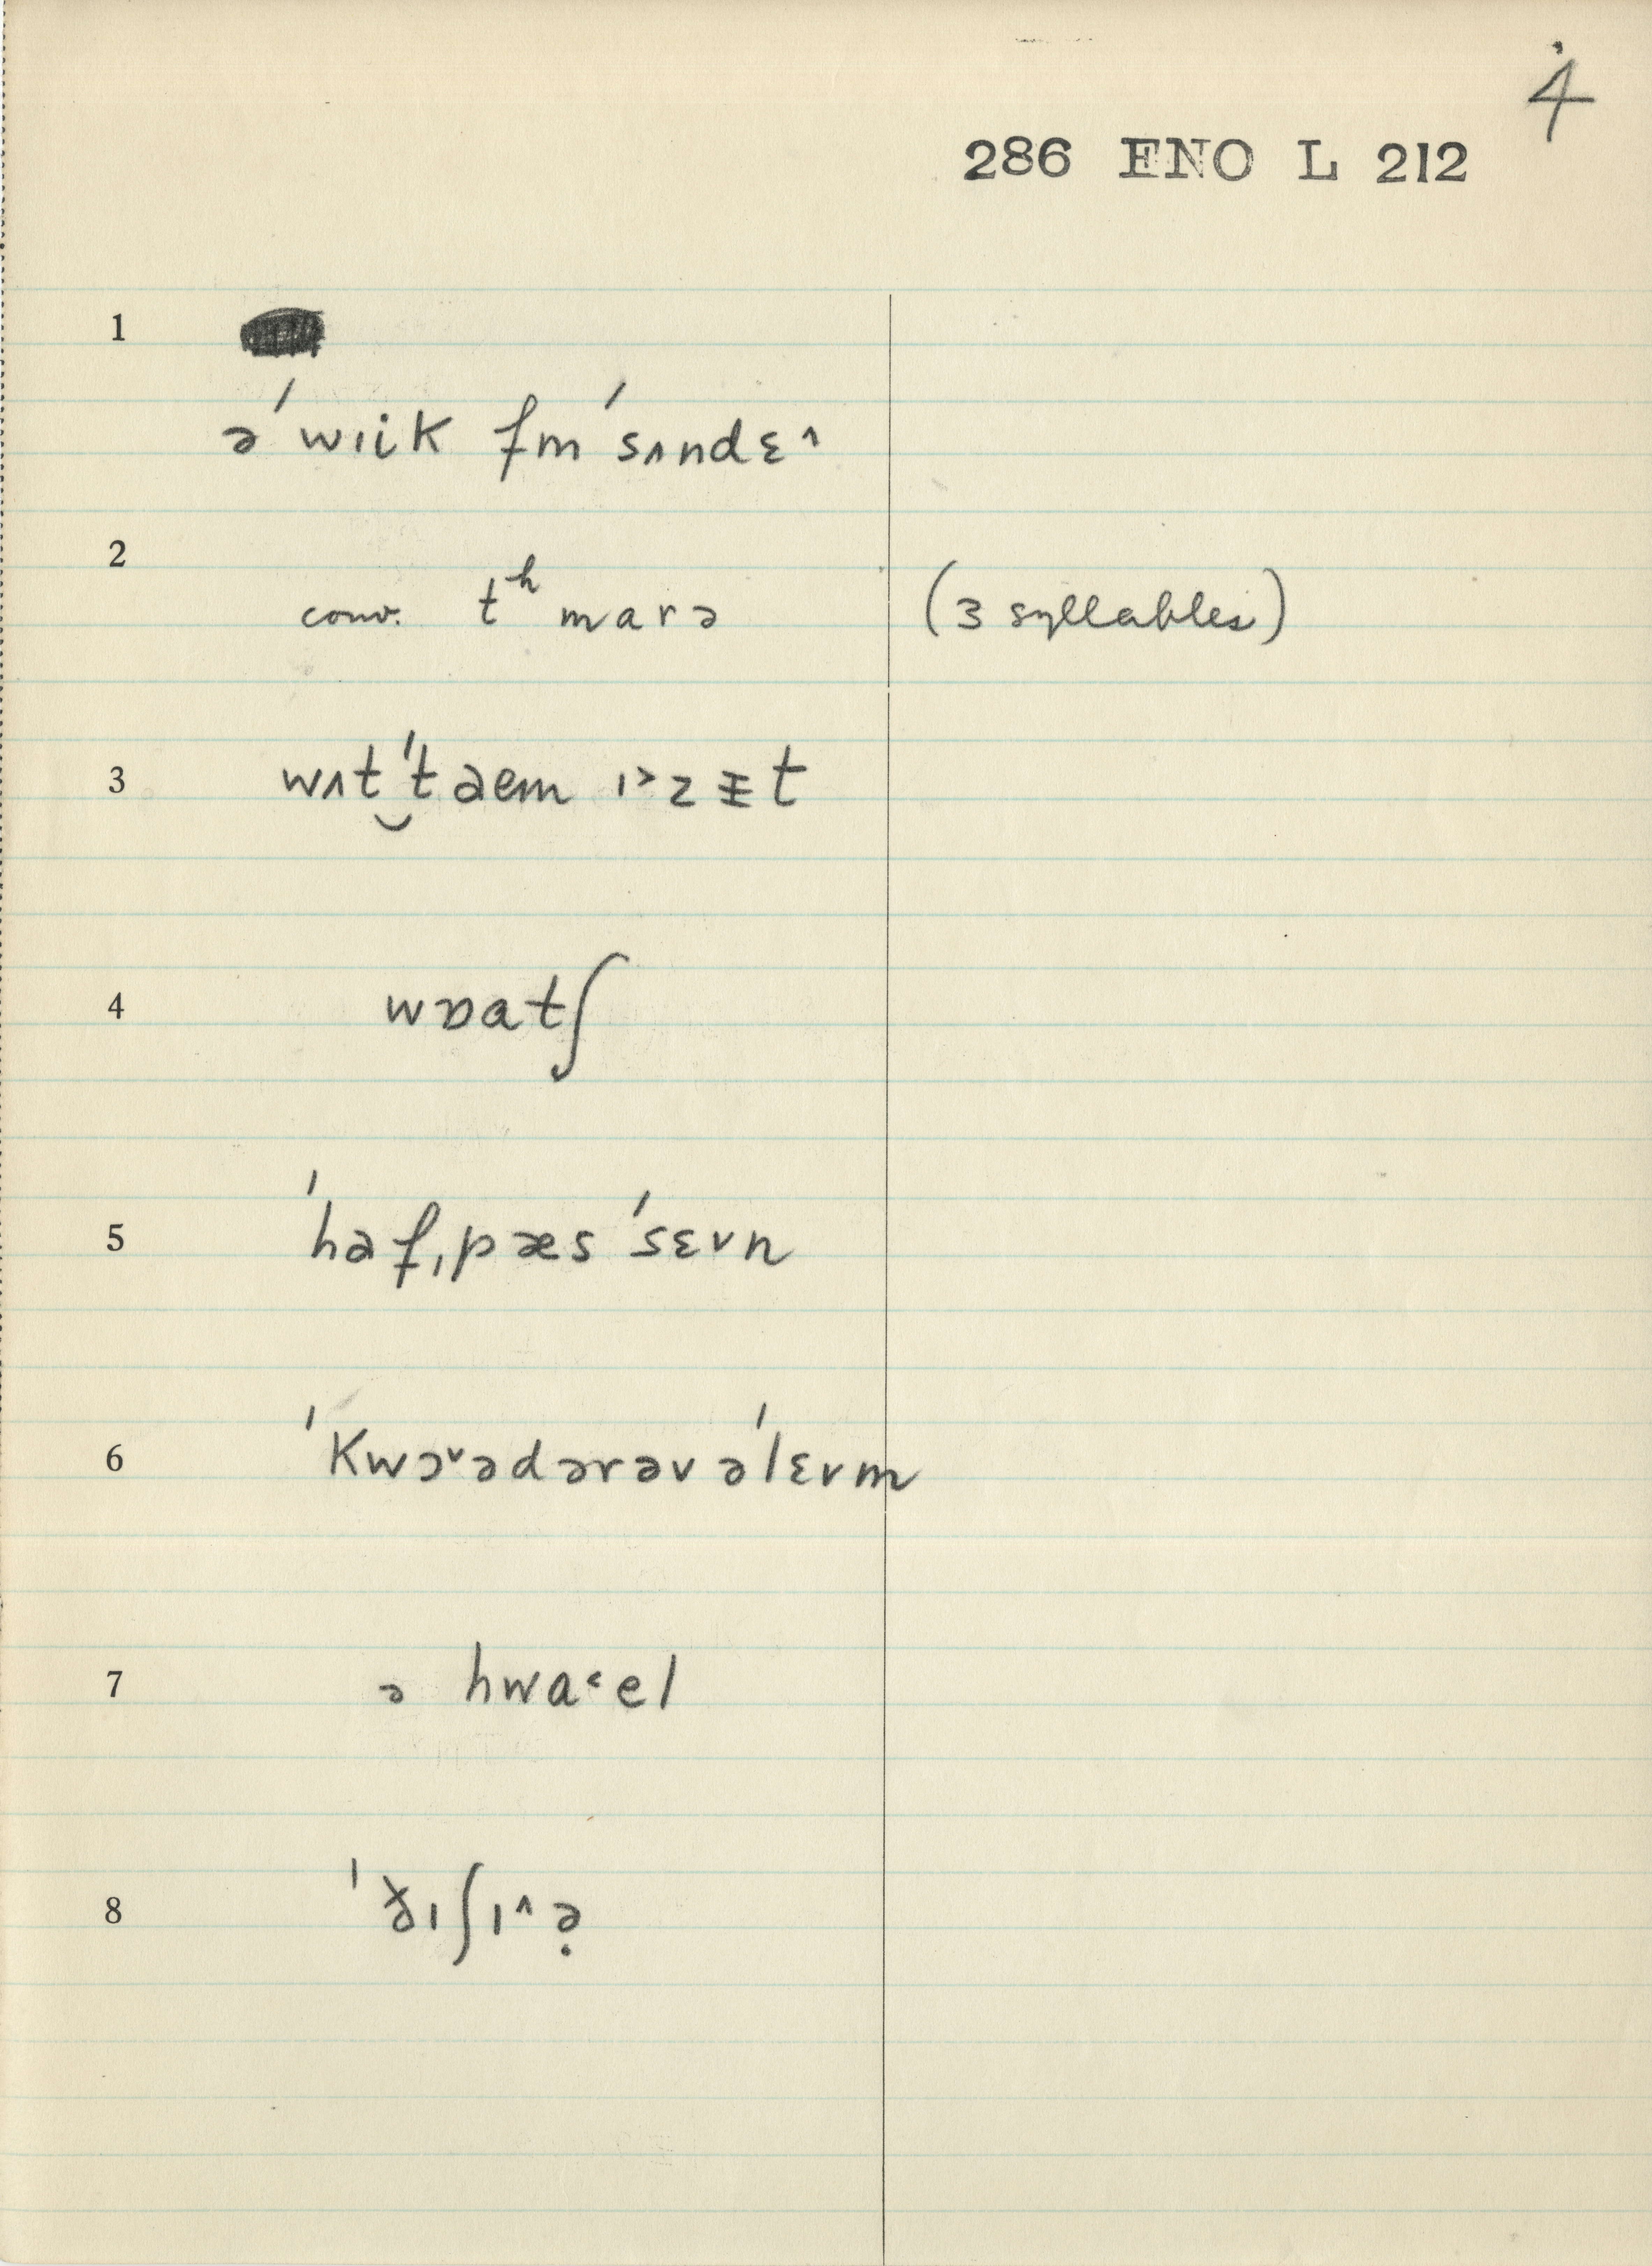 4
286 ENO L 212
1
ə ˈwɪik fm ˈsʌndɛ˄
2
conv. tʰ marə (3 syllables)
3
wʌt‿ˈt aem ɪ˃zᵻt
4
wɒatʃ
5
ˈhaf ˌpæs ˈsɛvn
6
ˈkwɔ˅ədərəv əˈlɛvm
7
ə hwa˂el
8
ˈð̌ɪʃɪ˄ə̣